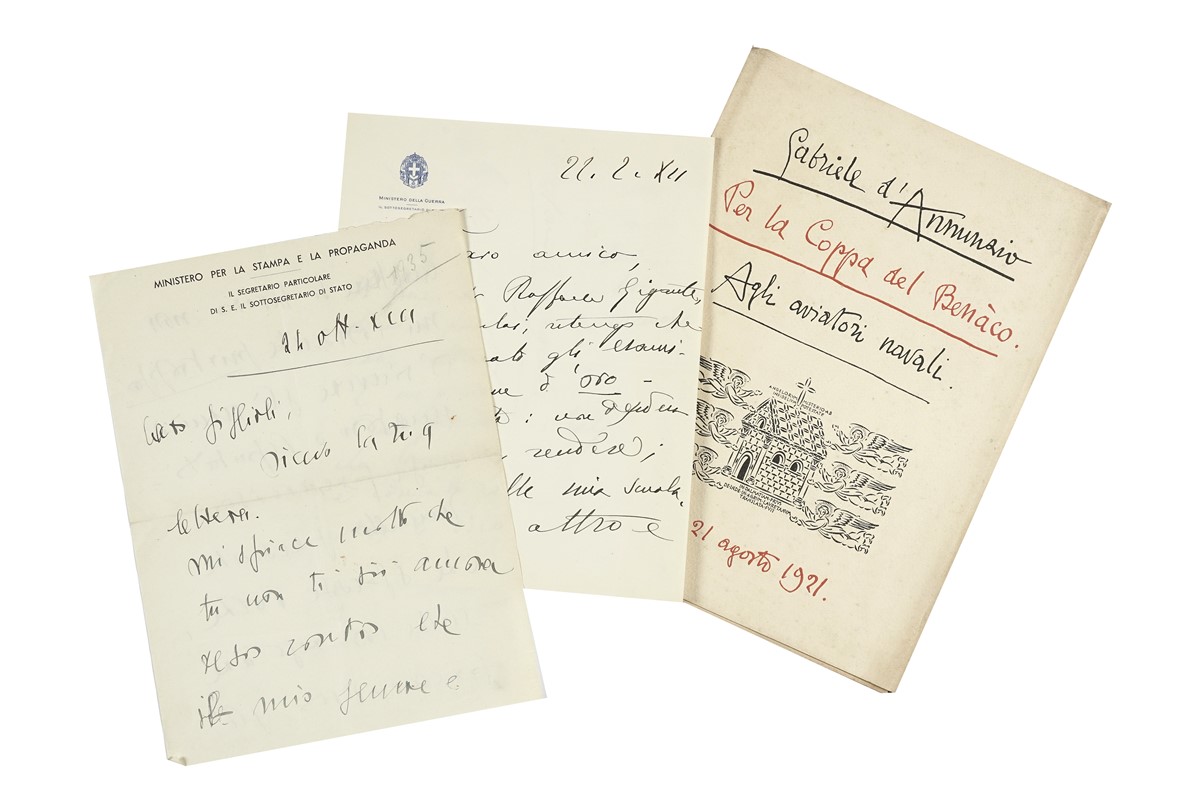 MINISTERO PER LA STAMPA E LA PROPAGANDA
IL SEGRETARIO PARTICOLARE
DI S. E. IL SOTTOSEGRETARIO DI STATO
1935
24 ott. XIII
Caro Giglioli,
ricevo la tua
lettera.
Mi spiace molto che
tu non ti sia ancora
reso conto che
il mio genere è
MINISTERO DELLA GUERRA
22. 2. XII
aro amico,
Raffaele Gigante,
ritengo che
gli esami-
ne d'oro -
: non
rendere;
lle mia scuola,
altro e
Gabriele d'Annunzio
Per la Coppa del Benàco.
Agli aviatori navali.
21 agosto 1921.